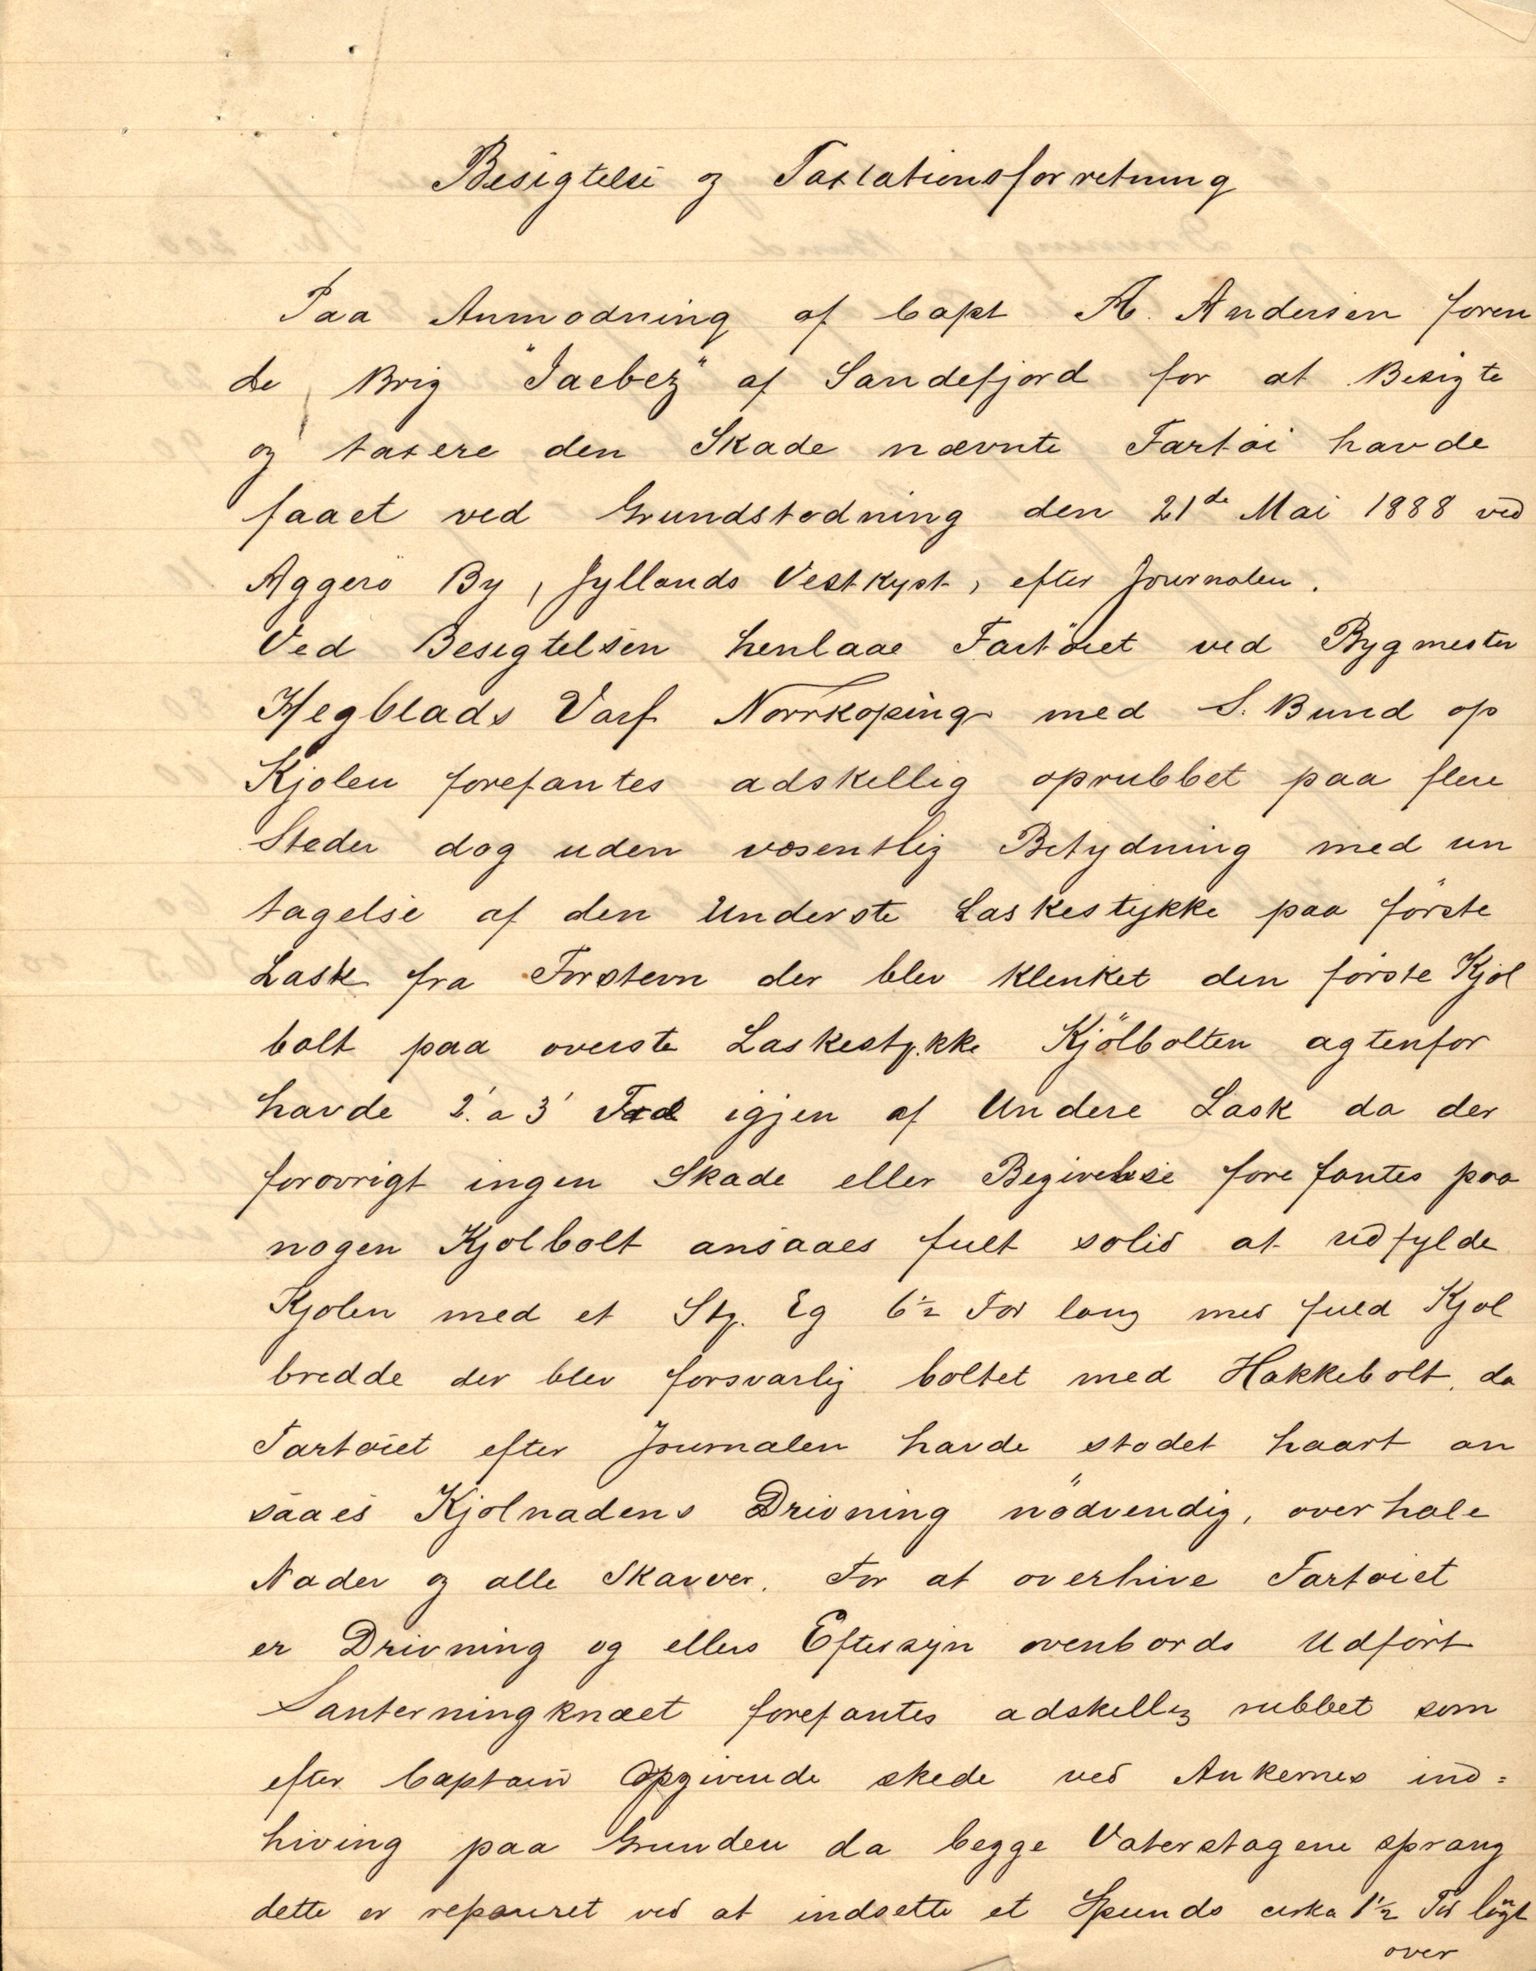 Besigtelse og Taxtationsforretning
Paa Anmodning af Capt A. Andersen foren
de Brig "Jaebez" af Sandefjord for at Besigte
og taxere den Skade nævnte Fartöi havde
faaet ved Grundstødning den 21de Mai 1888 ved
Aggerö By, Jyllands Vestkyst, efter Journalen.
Ved Besigtelsen henlaae Fartöiet ved Bygmester
Hegblads Varf Norrköping med S. Bund op
Kjolen forefantes adskellig oprubbet paa flere
Steder dog uden væsentlig Betydning med un
tagelse af den Underste Laskestykke paa förste
Lask fra Forstevn der blev Klenket den förste Kjol
bolt paa overste Laskestykke Kjölbolten agtenfor
havde 2' a 3' igjen af Undere Lask da der
forovrigt ingen Skade eller Begivelse forefantes paa
nogen Kjolbolt ansaaes fult solid at udfylde
Kjolen med et Sty. Eg 6½ Fod lang med fuld Kjol
bredde der blev forsvarlig boltet med Hakkebolt. da
Fartöiet efter Journalen havde stødet haart an
saaes Kjolnadens Drivning nödvendig, overhale
Nader og alle Skarver. For at overhive Fartöiet
er Drivning og ellers Eftersyn ovenbords Udfört
forefantes adskellig rubbet som
efter Captein Opgivende skede ved Ankernes ind=
hiving paa Grunden da begge Vaterstagene sprang
dette er repareret ved at indsette et Spunds cirka 1½ Fod lögt
over